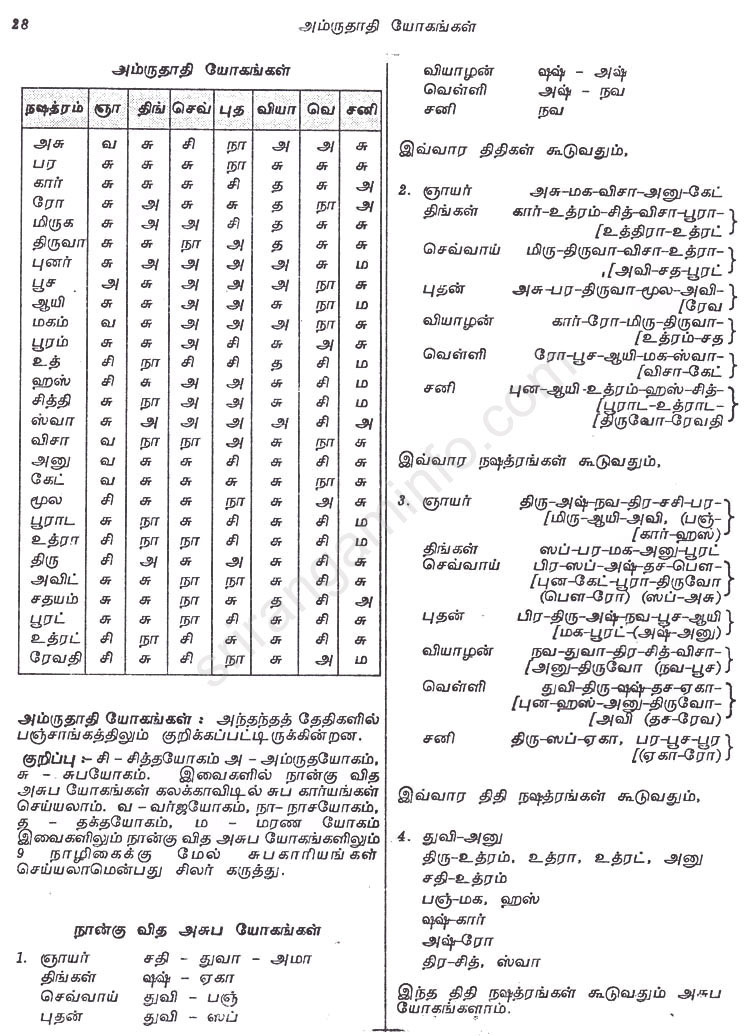 28
அம்ருதாதி யோகங்கள்
அம்ருதாதி யோகங்கள்
நஷத்ரம் ஞா திங் செவ் புத வியா வெ சனி
அசு வ சு சி நா அ அ சு
பர சு சு சு நா சு சு சு
கார் சு சு சு சி த சு அ
ரோ சு அ சு சு த நா அ
மிருக சு அ அ சி த சு சு
திருவா சு சு நா அ த சு சு
புனர் சு அ அ அ அ சு ம
பூச அ சு அ அ அ நா சு
ஆயி சு சு அ அ சு நா ம
மகம் வ சு அ அ அ நா சு
பூரம் சு சு அ சி சு அ சு
உத் சி நா சி சி த சி ம
ஹஸ் சி சு அ அ சு சி ம
சித்தி சு நா அ அ சு சி ம
ஸ்வா சு அ அ அ அ சி அ
விசா வ நா நா அ சு நா சு
அனு வ சு சு சி சு சி சு
கேட் வ சு சு சு சு நா சு
மூல சி சு சு நா சு அ சு
பூராட சு நா சு சி சு சி ம
உத்ரா சி நா நா சி சு சி ம
திரு சி அ சு அ சு சி சு
அவிட் சு சு நா நா சு சி சு
சதயம் சு சு நா சு த சி அ
பூரட் சு சு நா சி சு சி சு
உத்ரட் சி நா சி சி சு சு சு
ரேவதி சி சு சி நா சு அ ம
அம்ருதாதி யோகங்கள் : அந்தந்தத் தேதிகளில்
பஞ்சாங்கத்திலும் குறிக்கப்பட்டிருக்கின்றன.
குறிப்பு :– சி – சித்தயோகம் அ – அம்ருதயோகம்,
சு – சுபயோகம். இவைகளில் நான்கு வித
அசுப யோகங்கள் கலக்காவிடில் சுப கார்யங்கள்
செய்யலாம். வ – வர்ஜயோகம், நா– நாசயோகம்,
த – தக்தயோகம், ம – மரண யோகம்
இவைகளிலும் நான்கு வித அசுப யோகங்களிலும்
9 நாழிகைக்கு மேல் சுபகாரியங்கள்
செய்யலாமென்பது சிலர் கருத்து.
நான்கு வித அசுப யோகங்கள்
1. ஞாயர் சதி – துவா – அமா
திங்கள் ஷஷ் – ஏகா
செவ்வாய் துவி – பஞ்
புதன் துவி – ஸப்
வியாழன் ஷஷ் – அஷ்
வெள்ளி அஷ் – நவ
சனி நவ
இவ்வார திதிகள் கூடுவதும்,
2. ஞாயர் அசு–மக–விசா–அனு–கேட்
திங்கள் கார்–உத்ரம்–சித்–விசா–பூரா–
[உத்திரா–உத்ரட்
செவ்வாய் மிரு–திருவா–விசா–உத்ரா–
[அவி–சத–பூரட்
புதன் அசு–பர–திருவா–மூல–அவி–
[ரேவ
வியாழன் கார்–ரோ–மிரு–திருவா–
[உத்ரம்–சத
வெள்ளி ரோ–பூச–ஆயி–மக–ஸ்வா–
[விசா–கேட்
சனி புன–ஆயி–உத்ரம்–ஹஸ்–சித்–
[பூராட–உத்ராட–
[திருவோ–ரேவதி
இவ்வார நஷத்ரங்கள் கூடுவதும்,
3. ஞாயர் திரு–அஷ்–நவ–திர–சசி–பர–
[மிரு–ஆயி–அவி, (பஞ்–
[கார்–ஹஸ்)
திங்கள் ஸப்–பர–மக–அனு–பூரட்
செவ்வாய் பிர–ஸப்–அஷ்–தச–பௌ–
[புன–கேட்–பூரா–திருவோ
(பௌ–ரோ) (ஸப்–அசு)
புதன் பிர–திரு–அஷ்–நவ–பூச–ஆயி
[மக–பூரட்–(அஷ்–அனு)
வியாழன் நவ–துவா–திர–சித்–விசா–
[அனு–திருவோ (நவ–பூச)
வெள்ளி துவி–திரு–ஷஷ்–தச–ஏகா–
[புன–ஹஸ்–அனு–திருவோ–
[அவி (தச–ரேவ)
சனி திரு–ஸப்–ஏகா, பர–பூச–பூர
[(ஏகா–ரோ)
இவ்வார திதி நஷத்ரங்கள் கூடுவதும்,
4. துவி–அனு
திரு–உத்ரம், உத்ரா, உத்ரட், அனு
சதி–உத்ரம்
பஞ்–மக, ஹஸ்
ஷஷ்–கார்
அஷ்–ரோ
திர–சித், ஸ்வா
இந்த திதி நஷத்ரங்கள் கூடுவதும் அசுப
யோகங்களாம்.
srirangaminfo.com